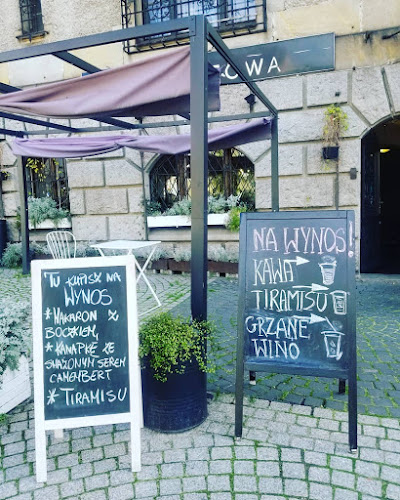 OWA
TU KUPISZ NA
WYNOS
* MAKARON Z
BOCZKIEM,
* KANAPKĘ ZE
SMAŻONYM SEREM
CAMEMBERT
* TIRAMISU
NA WYNOS!
KAWA →
TIRAMISU →
GRZANE →
WINO